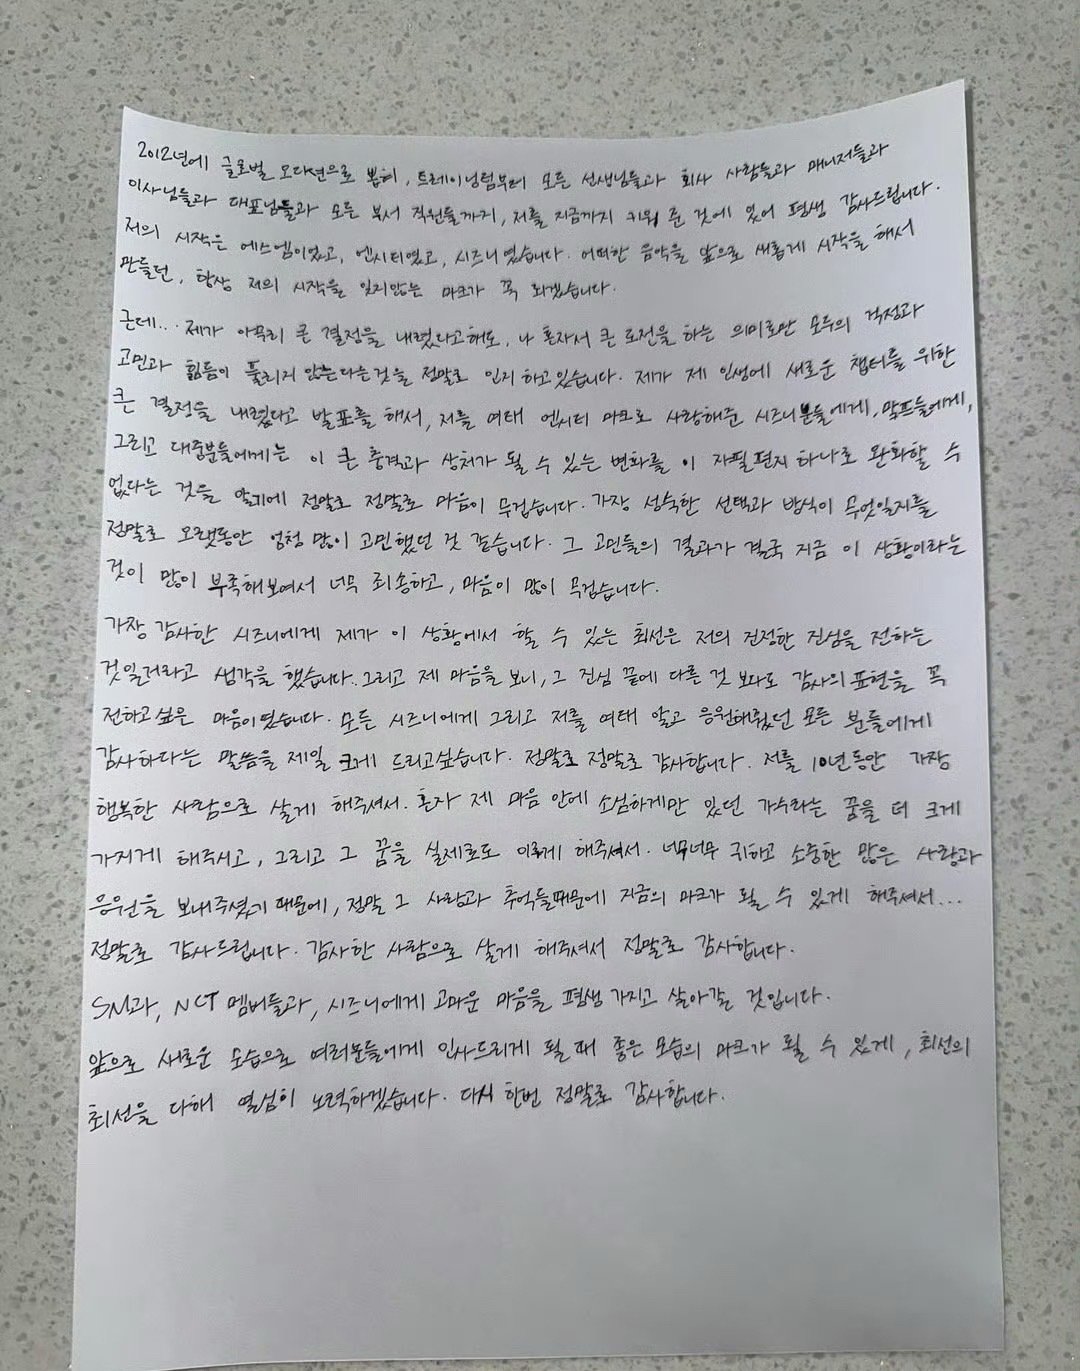 2012년에 글로벌 오디션으로 뽑혀, 트레이닝팀부터 모든 선생님들과 회사 사람들과 매니저들과
이사님들과 대표님들과 모든 부서 직원들까지, 저를 지금까지 키워 준 것에 있어 평생 감사드립니다.
저의 시작은 에스엠이었고, 엔시티였고, 시즈니였습니다. 어떠한 음악을 앞으로 새롭게 시작을 해서
만들던, 항상 저의 시작을 잊지않는 마크가 꼭 되겠습니다.
근데... 제가 아무리 큰 결정을 내렸다고해도, 나 혼자서 큰 도전을 하는 의미로만 모두의 걱정과
고민과 힘듦이 풀리지 않는다는것을 정말로 인지 하고있습니다. 제가 제 인생에 새로운 챕터를 위한
큰 결정을 내렸다고 발표를 해서, 저를 여태 엔시티 마크로 사랑해준 시즈니분들에게, 맠프들에게,
그리고 대중분들에게는 이 큰 충격과 상처가 될 수 있는 변화를 이 자필편지 하나로 완화할 수
없다는 것을 알기에 정말로 정말로 마음이 무겁습니다. 가장 성숙한 선택과 방식이 무엇일지를
정말로 오랫동안 엄청 많이 고민했던 것 같습니다. 그 고민들의 결과가 결국 지금 이 상황이라는
것이 많이 부족해보여서 너무 죄송하고, 마음이 많이 무겁습니다.
가장 감사한 시즈니에게 제가 이 상황에서 할 수 있는 최선은 저의 진정한 진심을 전하는
것일거라고 생각을 했습니다. 그리고 제 마음을 보니, 그 진심 끝에 다른 것 보다도 감사의 표현을 꼭
전하고싶은 마음이였습니다. 모든 시즈니에게 그리고 저를 여태 알고 응원해줬던 모든 분들에게
감사하다는 말씀을 제일 크게 드리고싶습니다. 정말로 정말로 감사합니다. 저를 10년동안 가장
행복한 사람으로 살게 해주셔서. 혼자 제 마음 안에 소심하게만 있던 가수라는 꿈을 더 크게
가지게 해주시고, 그리고 그 꿈을 실제로도 이루게 해주셔서. 너무너무 귀하고 소중한 많은 사랑과
응원을 보내주셨기 때문에, 정말 그 사랑과 추억들때문에 지금의 마크가 될 수 있게 해주셔서...
정말로 감사드립니다. 감사한 사람으로 살게 해주셔서 정말로 감사합니다.
SM과, NCT 멤버들과, 시즈니에게 고마운 마음을 평생 가지고 살아갈 것입니다.
앞으로 새로운 모습으로 여러분들에게 인사드리게 될 때 좋은 모습의 마크가 될 수 있게, 최선의
최선을 다해 열심히 노력하겠습니다. 다시 한번 정말로 감사합니다.